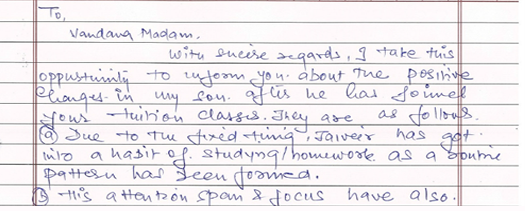 To,
Vandana Madam.
With sincise regards, I take this
oppurtunity to inform you. about the positive
changes. in my son. after he has joined
your tuition classes. They are as follows.
ⓐ Due to the fixed timing, Jaiveer has got.
into a habit of. studying/homework as a routine
pattern has been formed.
ⓑ His attention span & focus have also.